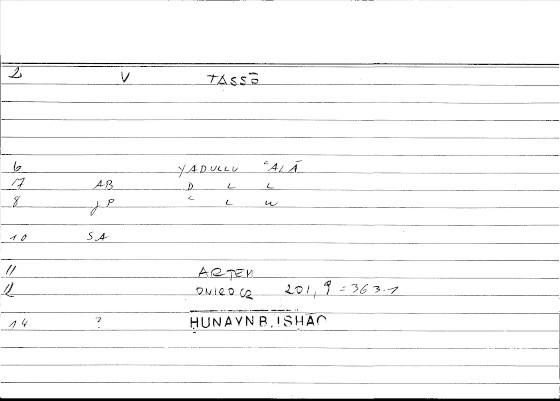 2 V TASSŌ
6 YADULLU ʿALĀ
17 AB D L L
8 JP L W
10 SA
11 ARTEM
12 ONIROCR 201, 9 = 363.1
14 ? ḤUNAYN B. ISḤĀQ